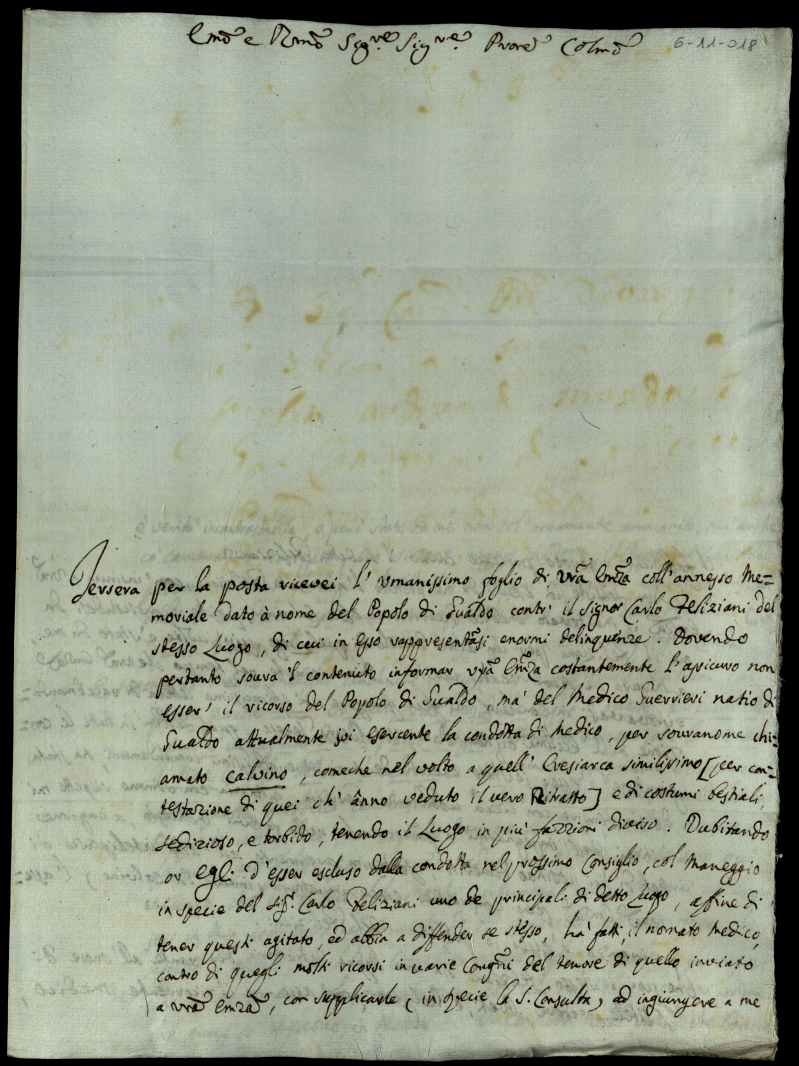 Emo e Rmo Sigre Sigre Prone Colmo
6-11-018
Jersera per la posta ricevei l' umanissimo foglio di vra Emza coll' annesso Me=
moriale dato à nome del Popolo di Gualdo contr' il Signor Carlo Feliziani del
stesso Luogo, di cui in esso rappresentasi enormi delinquenze. Dovendo
pertanto sovra 'l contenuto informar vra Emza costantemente l' assicuro non
esser' il ricorso del Popolo di Gualdo, ma' del Medico Guerrieri natio di
Gualdo attualmente ivi esercente la condotta di Medico, per sovranome chi=
amato calvino, comeche nel volto a quell' Eresiarca similissimo [per con=
testazione di quei ch' ànno veduto il vero Ritratto] e di costumi bestiali,
sedizioso, e torbido, tenendo il Luogo in più fazzioni diviso. Dubitando
or egli d' esser escluso dalla condotta nel prossimo Consiglio, col maneggio
in specie del Sigr Carlo Feliziani uno de principali di detto Luogo, affine di
tener questi agitato, ed abbia a diffender se stesso, hà fatti, il nomato Medico,
contro di quegli molti ricorsi in varie Congni del tenore di quello inviato
a vra Emza, con supplicarle (in specie la S. Consulta) ad ingiungere a me